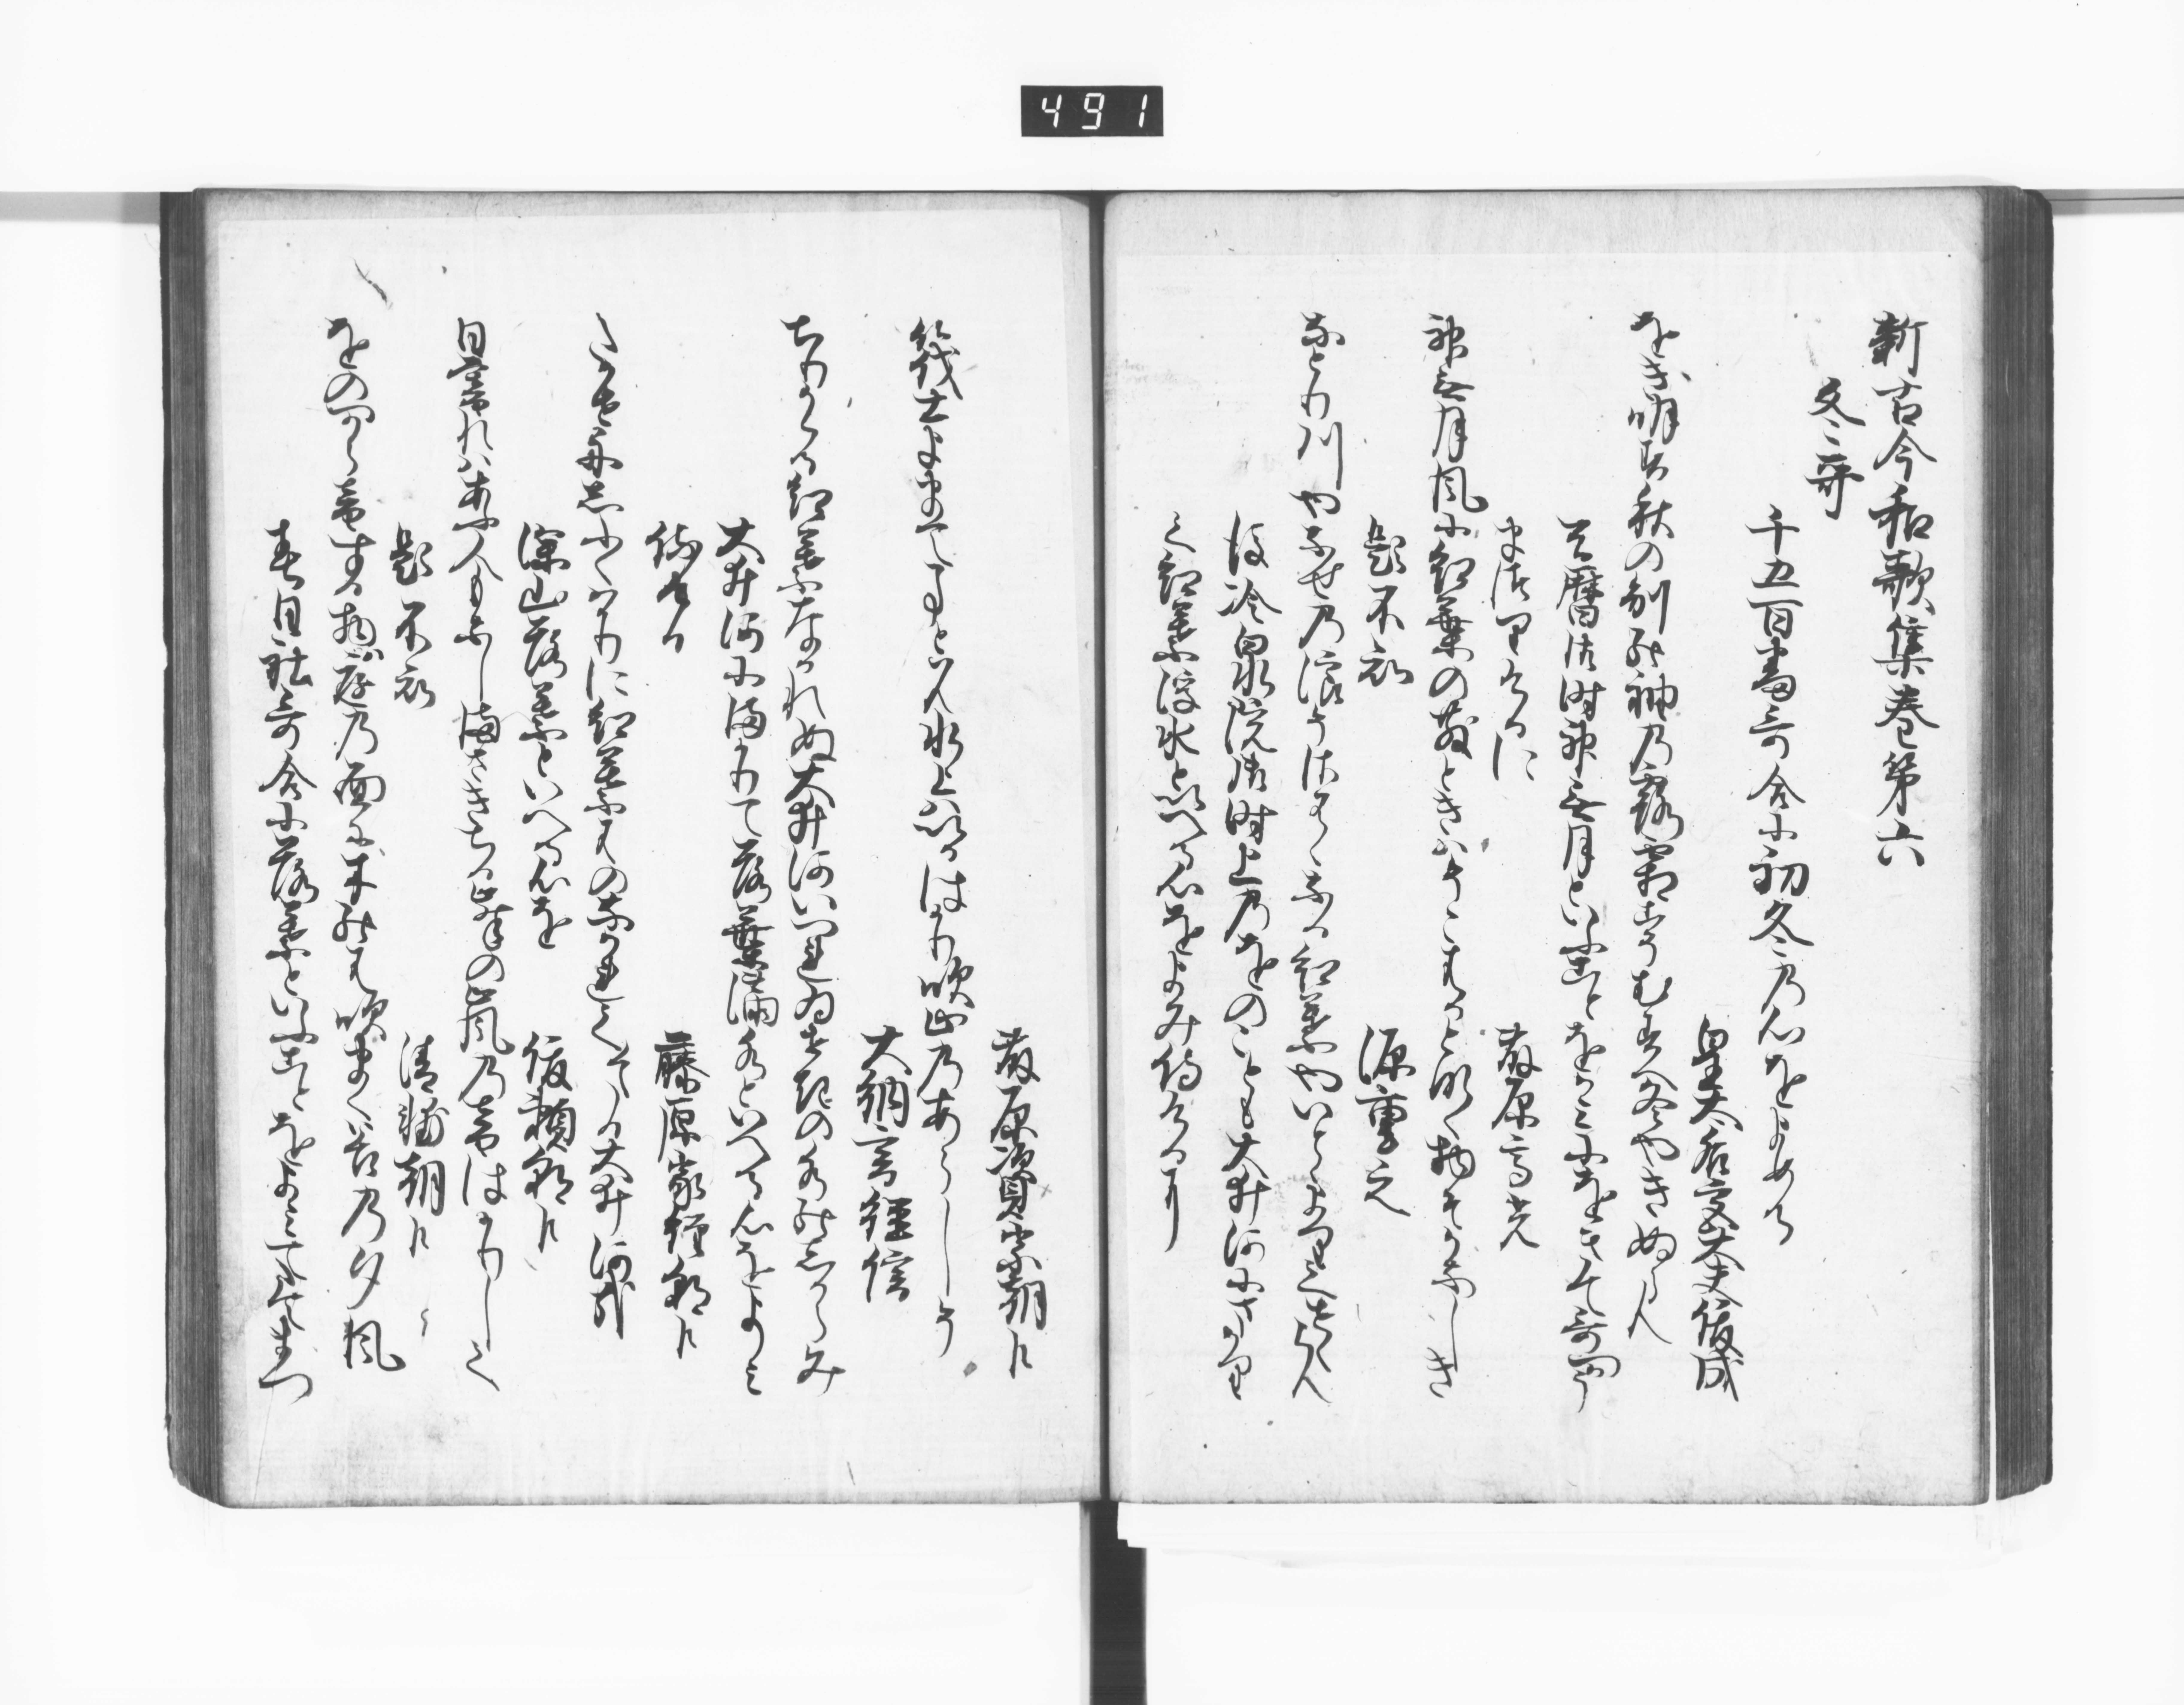 491
新古今和歌集巻第六
冬哥
千五百番哥合に初冬の心をよめる
皇太后宮大夫俊成
をき明す秋の別の袖の露霜こそむすへ冬やきぬらん
天暦御時神無月といふことをかみにをきて哥つかう
まつりけるに
藤原高光
神無月風に紅葉の散ときはそこはかとなく物そかなしき
題不知
源重之
なとり川やなせの浪そさはくなる紅葉やいとゝよりてせくらん
後冷泉院御時上のをのことも大井河にまかり
て紅葉浮水といへる心をよみ侍けるに
藤原資宗朝臣
筏士よまてことゝはん水上はいかはかり吹山のあらしそ
大納言経信
ちりかゝる紅葉なかれぬ大井河いつれゐせきの水のしからみ
大井河にまかりて落葉満水といへる心をよみ
侍ける
藤原家経朝臣
たかせ舟しふくはかりに紅葉はのなかれてくたる大井河哉
深山落葉といへる心を
俊頼朝臣
日暮れはあふ人もなしまさきちる峰の嵐の音はかりして
題不知
清輔朝臣
をのつから音する物は庭の面に木のは吹まく谷の夕風
春日社哥合に落葉といふことをよみてたてまつ